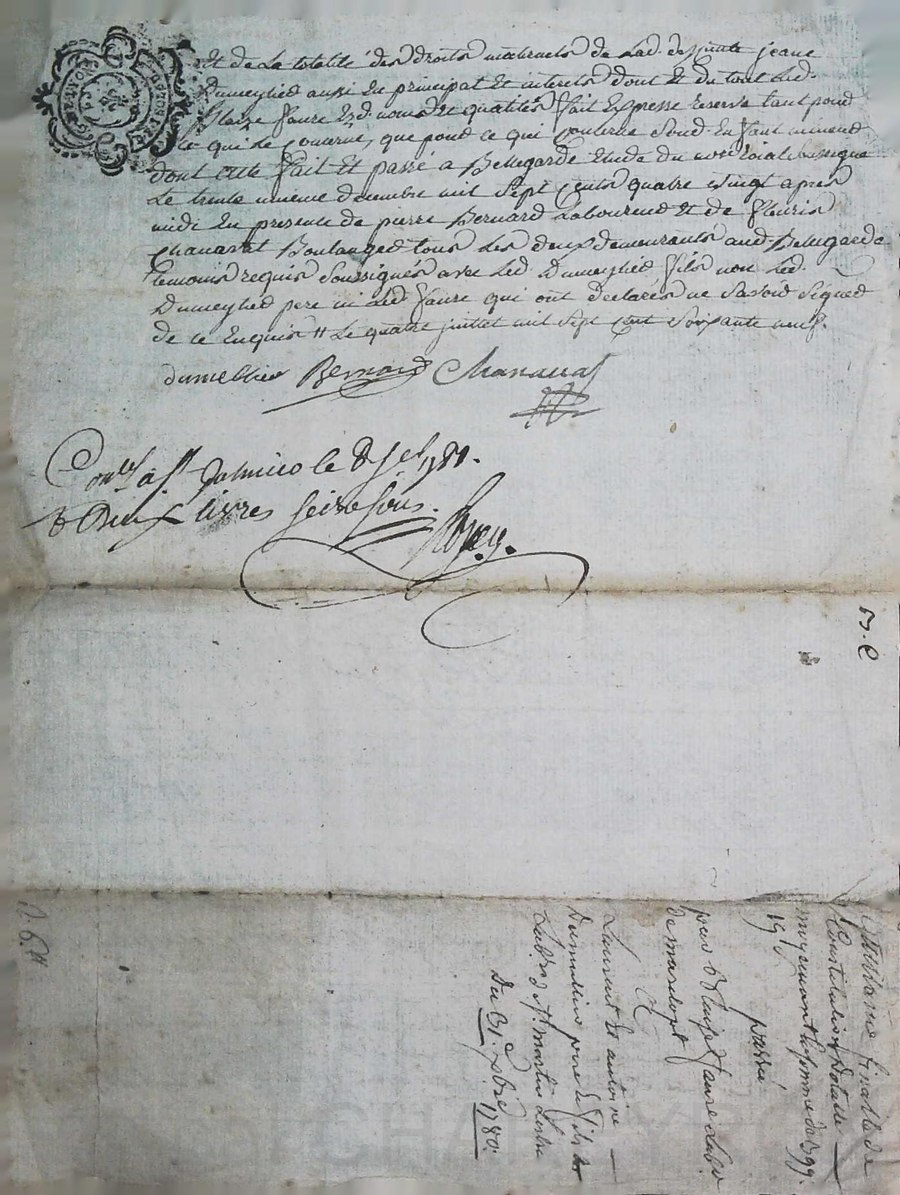 et de la totalité des droits maternels de lad. defunte jeane
Dumeylied aussi en principal et interets dont et du tout led.
Blaize faure esd. noms et qualités fait expresse reserve tant pour
ce qui le concerne, que pour ce qui concerne sond. enfant mineur
dont acte fait et passé a Bellegarde etude du no.re roial soussigné
le trente unieme decembre mil sept cents quatre vingt apres
midi en presence de pierre Bernard laboureur et de fleuris
chanavat Boulanger tous les deux demeurants aud. Bellegarde
temoins requis soussignés avec led. Dumeylied fils non led.
Dumeylied pere ni led faure qui ont declarés ne savoir signer
de ce enquis le quatre juillet mil sept cent soixante neuf.
dumellier Bernard Chanavat
a St. Galmier le 8 1781.
deux livres seize sous.
quittance finalle de
Constitution Dotalle
moyenant la somme de 399
19 s
passée
par Blaize faure lab.r
a
Laurent et antoine
Dumeslier pere et fils
Lab.rs a St. Martin Lestra
Du 31. xbre 1780.